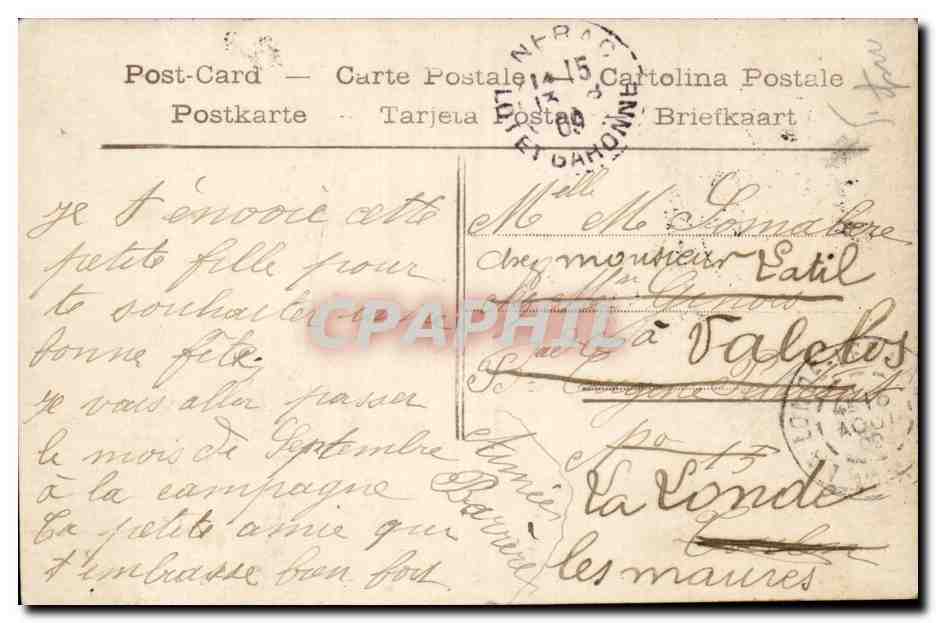 Post-Card — Carte Postale — Cartolina Postale
Postkarte Tarjeta Postal Briefkaart
NERAC
LOT ET GARONNE
14 15
13 8
09
Je t'envoie cette
petite fille pour
te souhaiter une
bonne fête
Je vais aller passer
le mois de Septembre
à la campagne
Ta petite amie qui
t'embrasse bien fort
Aimée
Barrère
Melle M Lomabere
chez monsieur Latil
à Valclos
Bd Eugène
No 15
La Londe
Toulon
les maures
LA LONDE
AOUT
CPAPHIL